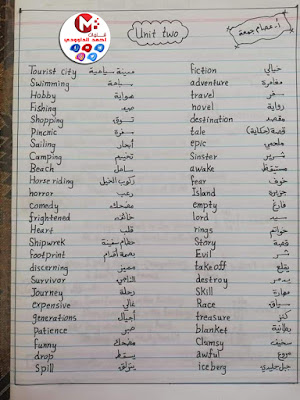 قناة
احمد الداوودي
Unit two
أ. عصام جمعة
Tourist city مدينة سياحية fiction خيالي
Swimming سباحة adventure مغامرة
Hobby هواية travel سفر
Fishing صيد novel رواية
Shopping تسوق destination مقصد
Pincnic سفرة tale قصة (حكاية)
Sailing أبحار epic ملحمي
Camping تخييم Sinster شرير
Beach ساحل awake مستيقظ
Horse riding ركوب الخيل fear خوف
horror رعب Island جزيرة
comedy مضحك empty فارغ
frightened خائف lord سيد
Heart قلب rings خواتم
Shipwrek حطام سفينة Story قصة
footprint بصمة أقدام Evil شر
discerning مميز take off يقلع
Survivor الناجي destroy يدمر
Journey رحلة Skill مهارة
expensive غالي Race سباق
generations أجيال treasure كنز
patience صبر blanket بطانية
funny مضحك Clumsy سخيف
drop يسقط awful مروع
Spill iceberg جبل جليدي